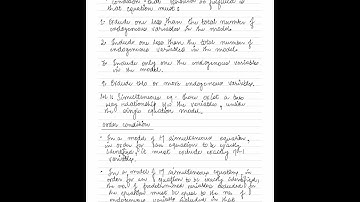 condition that
that equation must :
1. Exclude one less than the total number of
endogenous variables in the model
2. Include one less than the total number of
endogenous variables in the model.
3. Include only one the endogenous variables
in the model.
4. Exclude two or more endogenous variables.
is simultaneous eq. there exist a two
way relationship the variables, under
the single equation model.
order condition
• In a model of M simultaneous equation,
in order for an equations to be exactly
identified, it must exclude exactly M-1
variables.
• In a model of M simultaneous equation, in
order for an equation to be exactly identified, the
no. of predetermined variables excluded from
the equation must be equal to the no. of
endogenous variables included in that